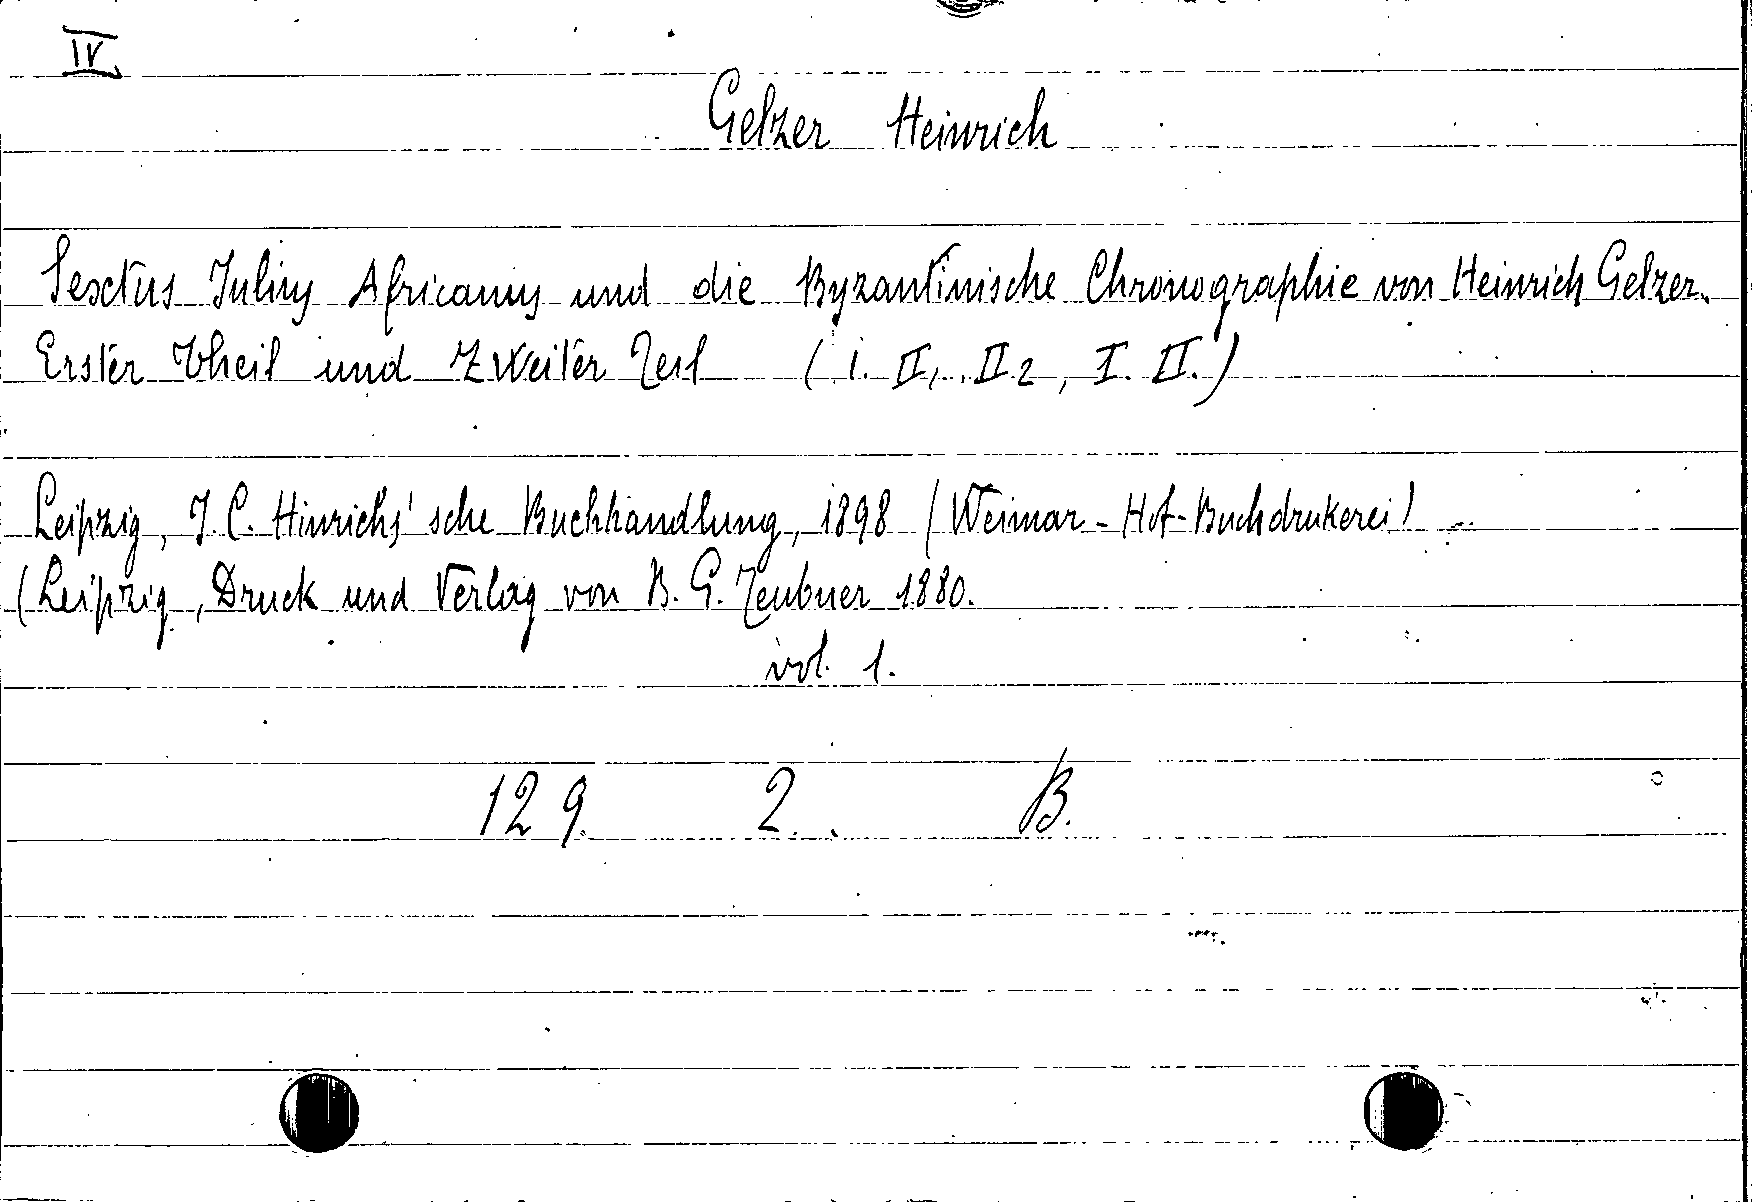 IV
Gelzer Heinrich
Sextus Julius Africanus und die Byzantinische Chronographie von Heinrich Gelzer.
Erster Theil und Zweiter Teil (i. II, II 2, I. II.)
Leipzig, J. C. Hinrichs'sche Buchhandlung, 1898 (Weimar - Hof-Buchdrukerei)
(Leipzig, Druck und Verlag von B. G. Teubner 1880.
vol. 1.
129. 2. B.